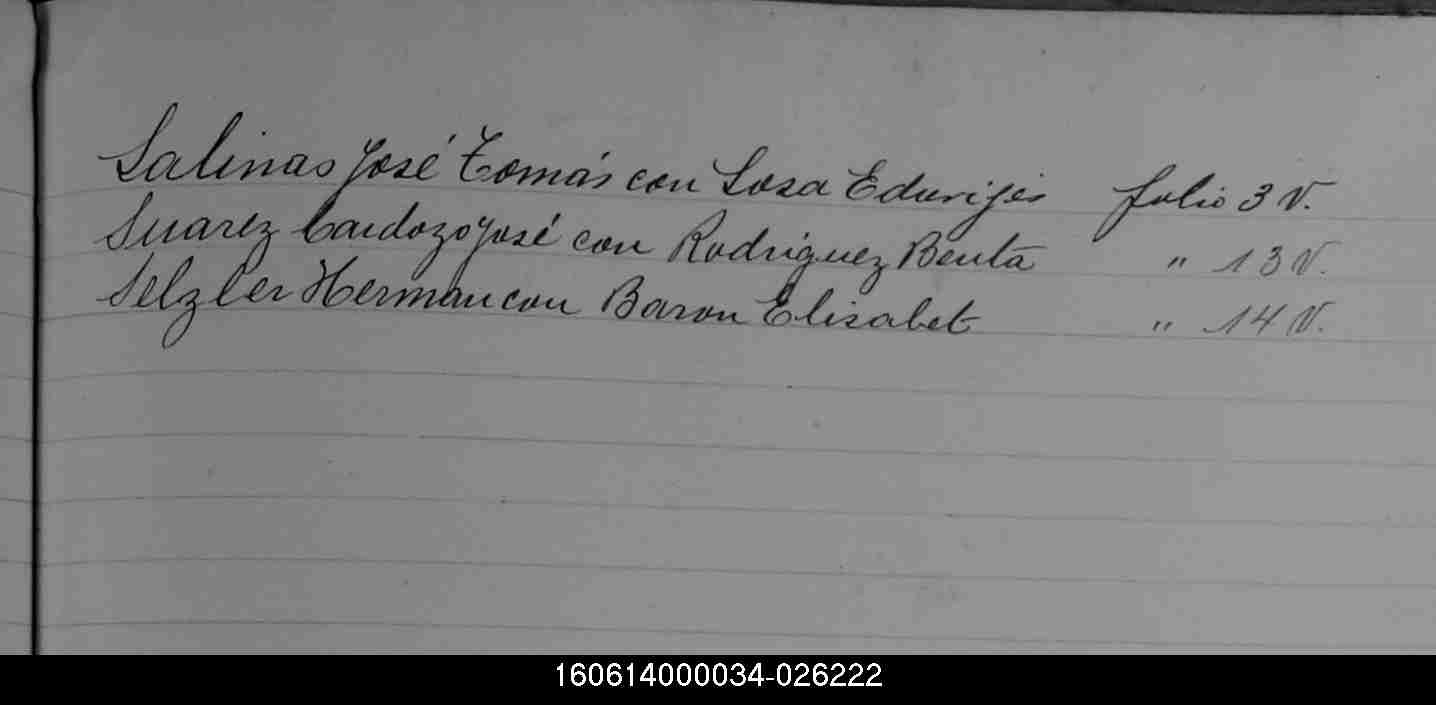 Salinas José Tomás con Sosa Eduvijes folio 3 V.
Suarez Cardozo José con Rodriguez Benta " 13 V.
Selzler Herman con Baron Elisabet " 14 V.
160614000034-026222